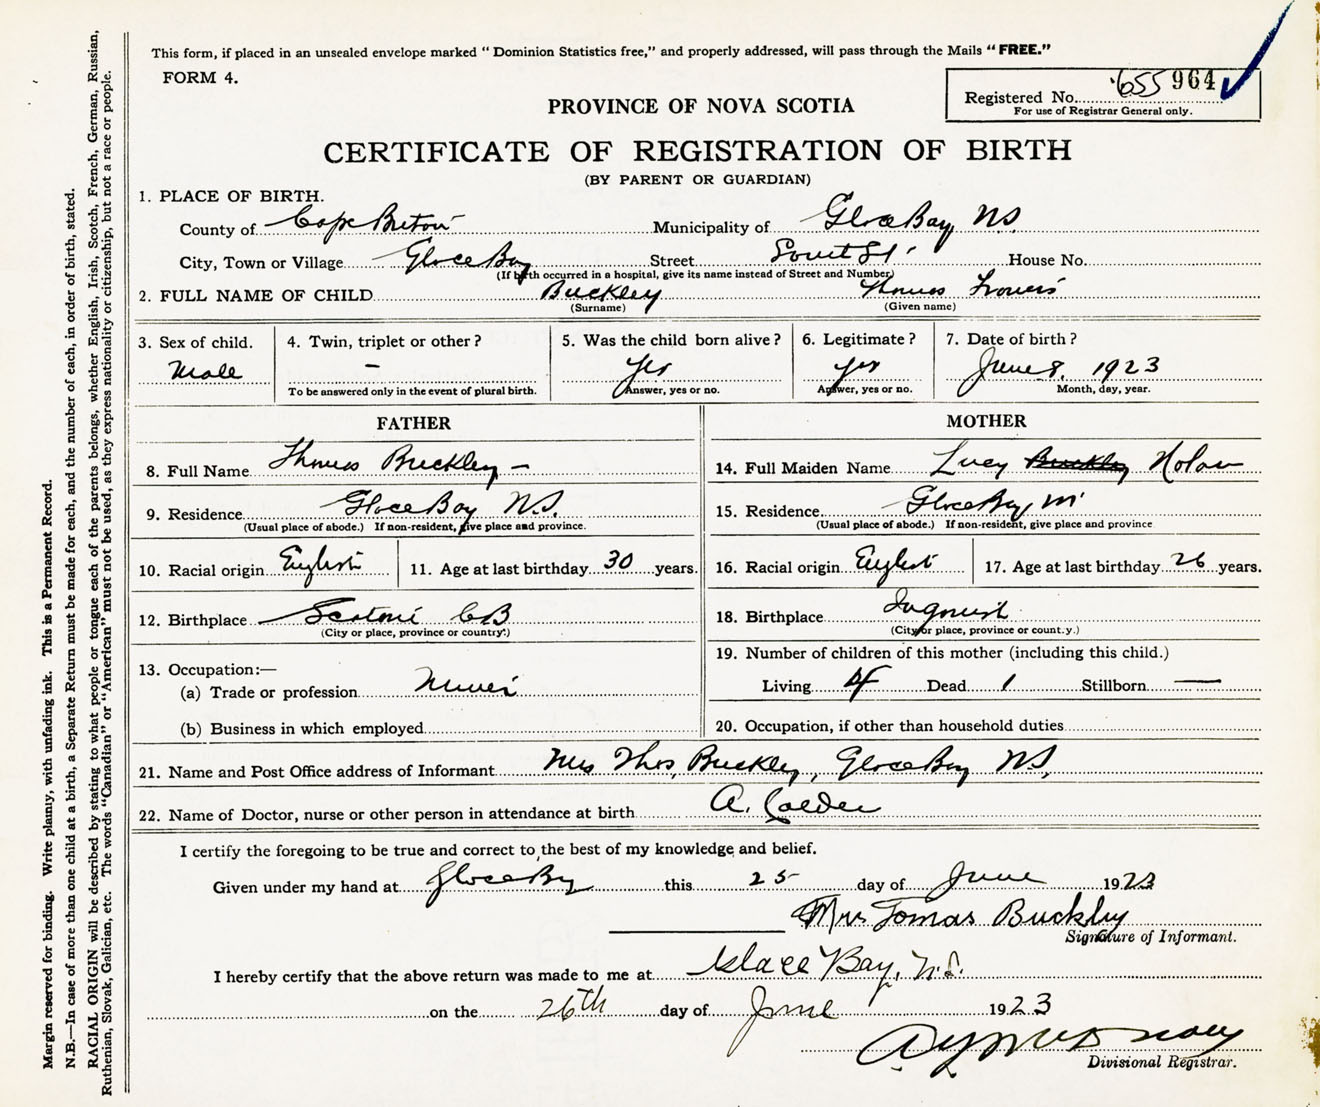 This form, if placed in an unsealed envelope marked "Dominion Statistics free," and properly addressed, will pass through the Mails "FREE."
FORM 4.
Registered No. 655 964
For use of Registrar General only.
PROVINCE OF NOVA SCOTIA
CERTIFICATE OF REGISTRATION OF BIRTH
(BY PARENT OR GUARDIAN)
1. PLACE OF BIRTH.
County of Cape Breton Municipality of Glace Bay NS
City, Town or Village Glace Bay Street St House No.
(If birth occurred in a hospital, give its name instead of Street and Number)
2. FULL NAME OF CHILD Buckley Thomas Francis
(Surname) (Given name)
3. Sex of child. 4. Twin, triplet or other? 5. Was the child born alive? 6. Legitimate? 7. Date of birth?
Male – Yes Yes June 8, 1923
To be answered only in the event of plural birth. Answer, yes or no. Answer, yes or no. Month, day, year.
FATHER
8. Full Name Thomas Buckley –
9. Residence Glace Bay N.S.
(Usual place of abode.) If non-resident, give place and province.
10. Racial origin English 11. Age at last birthday 30 years.
12. Birthplace CB
(City or place, province or country.)
13. Occupation:—
(a) Trade or profession Miner
(b) Business in which employed
MOTHER
14. Full Maiden Name Lucy Buckley Nolan
15. Residence Glace Bay
(Usual place of abode.) If non-resident, give place and province
16. Racial origin English 17. Age at last birthday 26 years.
18. Birthplace Ingonish
(City or place, province or count.y.)
19. Number of children of this mother (including this child.)
Living 4 Dead 1 Stillborn —
20. Occupation, if other than household duties
21. Name and Post Office address of Informant Mrs Thos, Buckley, Glace Bay NS,
22. Name of Doctor, nurse or other person in attendance at birth A. Calder
I certify the foregoing to be true and correct to the best of my knowledge and belief.
Given under my hand at Glace Bay this 25 day of June 1923
Mrs Tomas Buckley
Signature of Informant.
I hereby certify that the above return was made to me at Glace Bay, N.S.
on the 26th day of June 1923
Divisional Registrar.
Margin reserved for binding. Write plainly, with unfading ink. This is a Permanent Record.
N.B.—In case of more than one child at a birth, a Separate Return must be made for each, and the number of each, in order of birth, stated.
RACIAL ORIGIN will be described by stating to what people or tongue each of the parents belongs, whether English, Irish, Scotch, French, German, Russian,
Ruthenian, Slovak, Galician, etc. The words "Canadian" or "American" must not be used, as they express nationality or citizenship, but not a race or people.